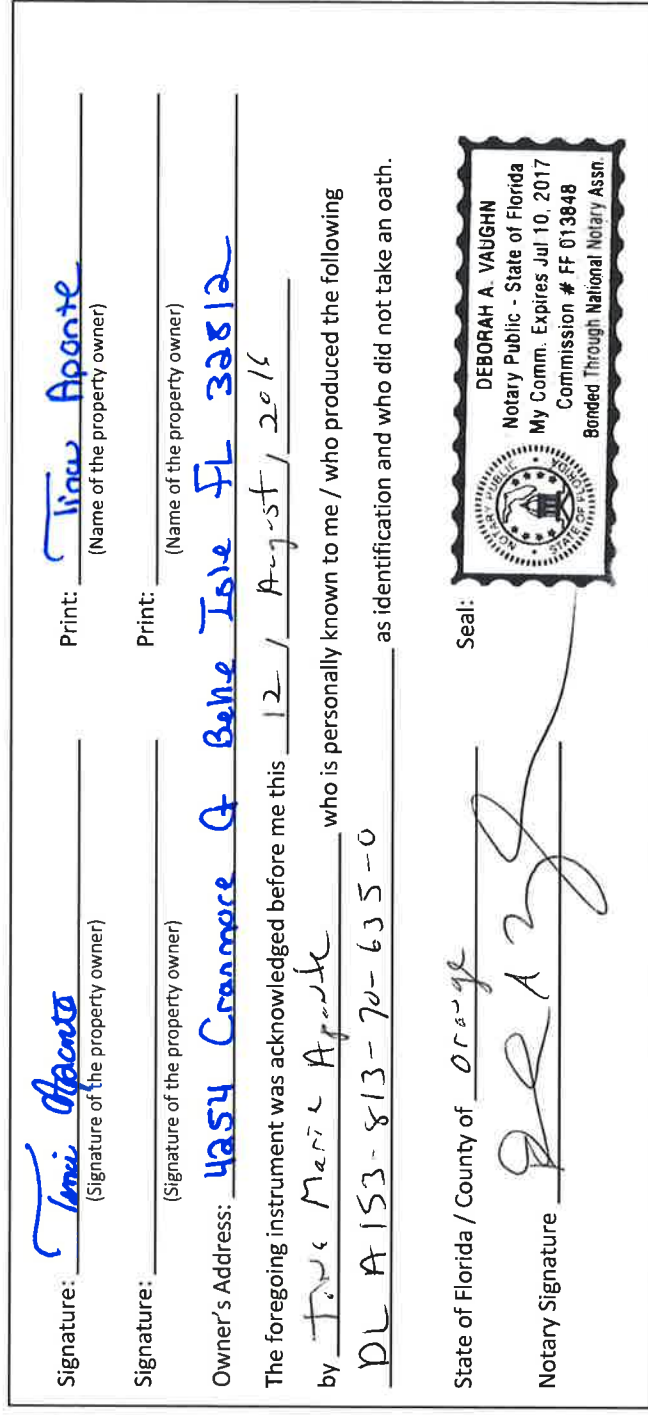 Signature: Tina Aponte Print: Tina Aponte
(Signature of the property owner) (Name of the property owner)
Signature: Print:
(Signature of the property owner) (Name of the property owner)
Owner's Address: 4254 Cranmore Ct Belle Isle FL 32812
The foregoing instrument was acknowledged before me this 12 / August / 2016
by Tina Marie Aponte who is personally known to me / who produced the following
DL A153-813-70-635-0 as identification and who did not take an oath.
State of Florida / County of Orange Seal:
Notary Signature
NOTARY PUBLIC
STATE OF FLORIDA
DEBORAH A. VAUGHN
Notary Public - State of Florida
My Comm. Expires Jul 10, 2017
Commission # FF 013848
Bonded Through National Notary Assn.